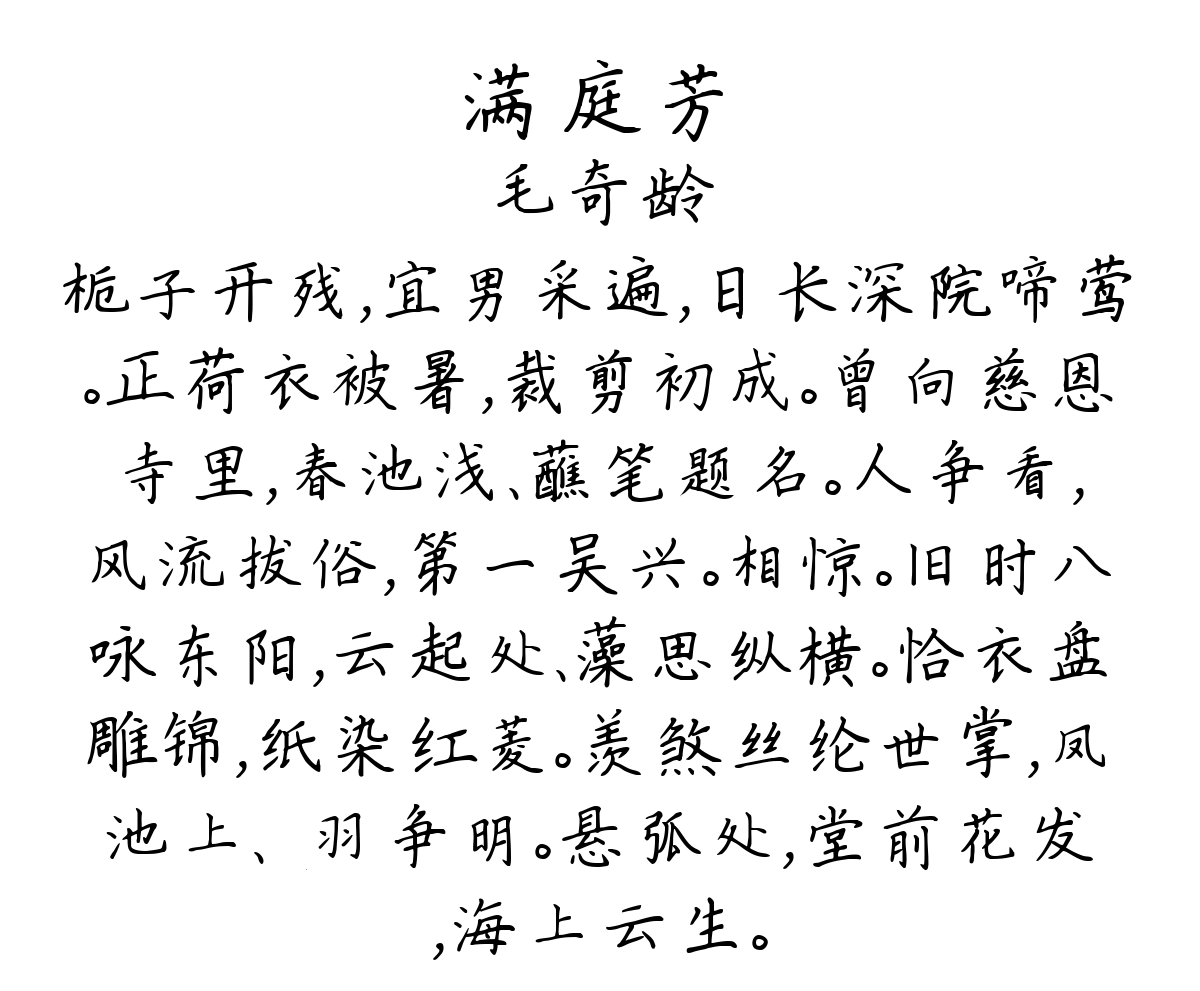 满庭芳
毛奇龄
栀子开残,宜男采遍,日长深院啼莺
。正荷衣被暑,裁剪初成。曾向慈恩
寺里,春池浅、蘸笔题名。人争看,
风流拔俗,第一吴兴。相惊。旧时八
咏东阳,云起处、藻思纵横。恰衣盘
雕锦,纸染红菱。羡煞丝纶世掌,凤
池上、羽争明。悬弧处,堂前花发
,海上云生。